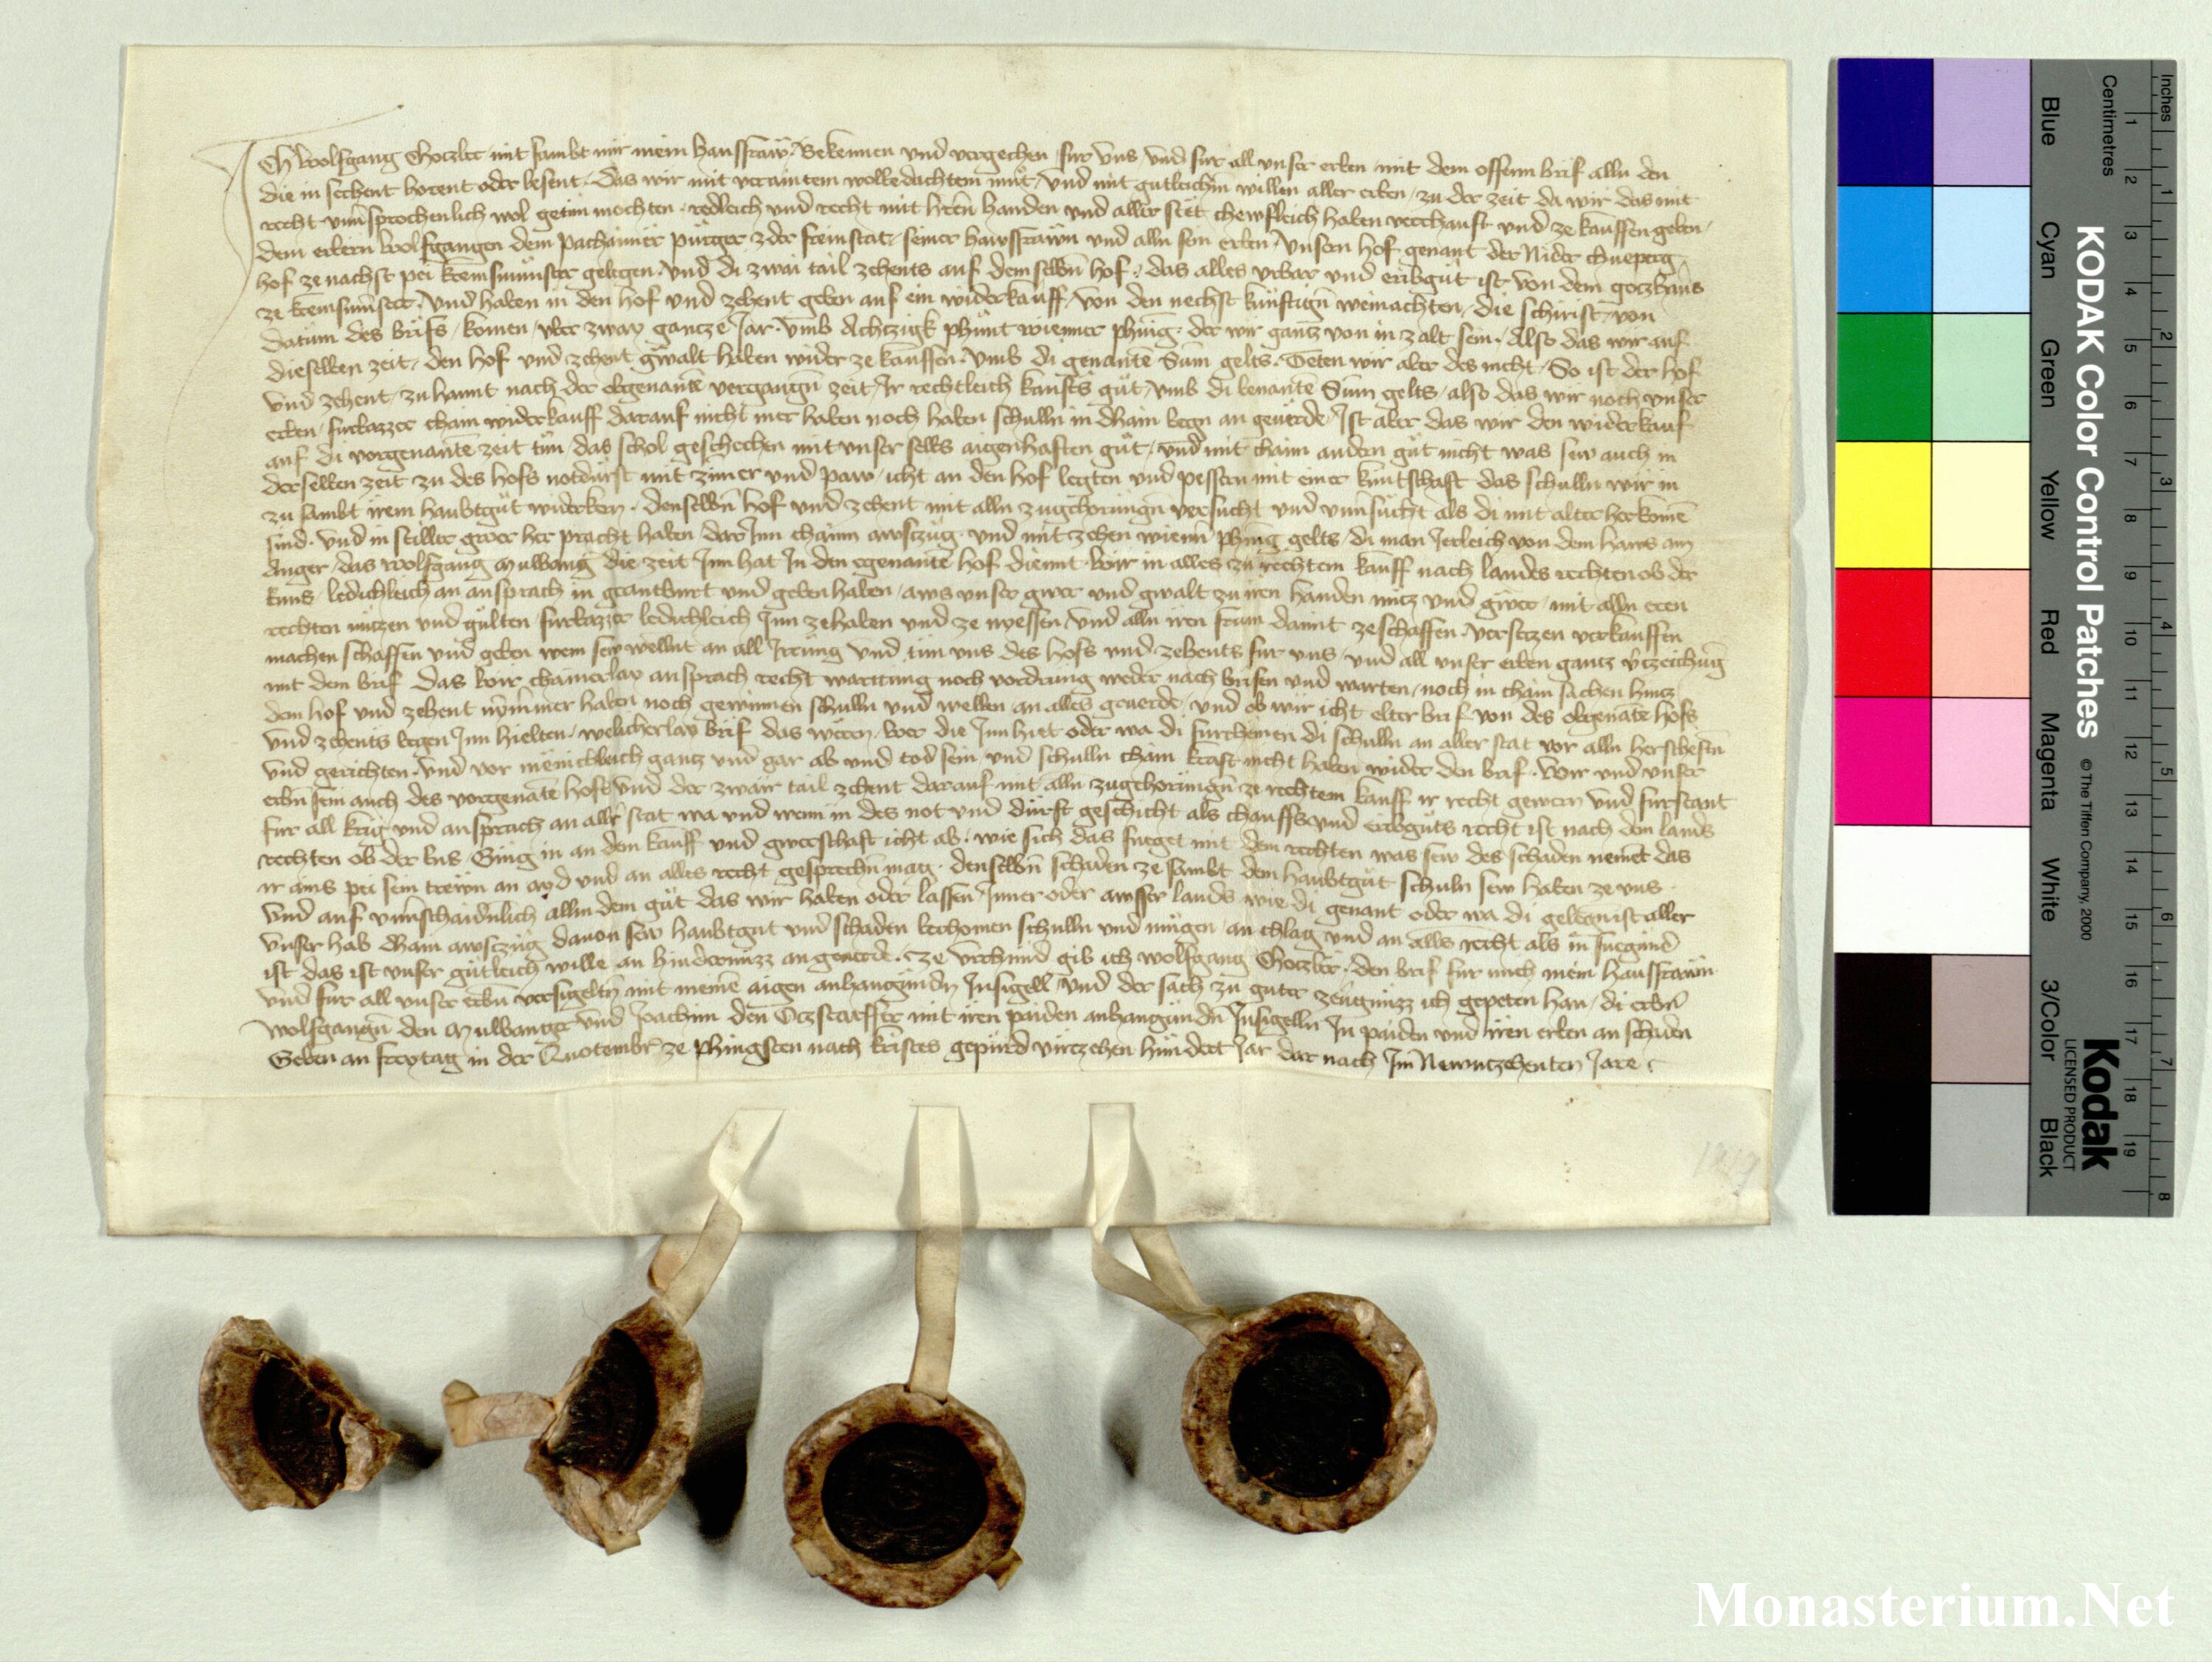 Ich Wolfgang Chotzler mit sambt mir mein hausfraw Bekennen und vergechen fur uns und fur all unser erben mit dem offenn brif alln den
die in sechent horent oder lesent Das wir mit veraintem wolbedachtem mut und mit gutleichm willen aller erben zu der zeit da wir das mit
recht unversprochenlich wol getun mochten redleich und recht mit hern handen und aller stet chewfleich haben verchauft und ze kauffen geben
dem erbern Wolfgangen dem pachaimer purger zder freinstat seiner hawsfrawn und alln sein erben unsern hof genant der Nider chueperg
hof ze nachst pei kremsmunster gelegen und di zwai tail zehents auf demselbn hof das alles urbar und eribgut ist von dem goczhaus
ze kremsmunster und haben in den hof und zehent geben auf ein widerkauff von den nechst kunftign weinachten die schirist von
datum des brifs komen uber zway gancze Jar umb Achczigk phunt wienner phenig der wir gancz von in zalt sein Also das wir auf
dieselben zeit den hof und zehent gwalt haben wider ze kauffen umb di genante Sum gelts Teten wir aber des nicht So ist der hof
und zehent zu hannt nach der obgenante vergangn zeit Ir rechtleich kaufts gut umb di benante Sum gelts also das wir noch unser
erben furbazzer chain widerkauff darauf nicht mer haben noch haben schulln in dhain wegn an geverde Ist aber das wir den widerkauf
auf di vorgenante zeit tun das schol geschechen mit unser selbs aigenhaften gut und mit chaim andern gut nicht was sew auch in
derselben zeit zu des hofs notdurft mit zimer und paw icht an den hof legten und pessern mit einer kuntschaft das schulln wir in
zu sambt irem haubtgut widerkern denselbn hof und zehent mit alln zugehorungn versucht und unversucht als di mit alter herkome
sind und in stiller gwer her pracht haben darInn chainn awszug und mit zehen wienn phenig gelts di man Jerleich von dem haws am
Anger das Wolfgang Mulwang die zeit Inn hat In den egenante hof diennt wir in alles zu rechtem kauff nach landes rechten ob der
Enns ledichleich an ansprach in geantburt und geben haben aws unser gwer und gwalt zu iren handen nucz und gwer mit alln eren
rechten nuczen und gulten furbazzer ledichleich Inn ze haben und ze nyessen und alln iren frum damit ze schaffen verseczen verkauffen
machen schaffen und geben wem sew wellnt an all Irrung und tun uns des hofs und zehents fur uns und all unser erben gancz verzeichung
mit dem brif Das wir chainerlay ansprach recht wartung noch vordrung weder nach brifen und warten noch in chain sachen hincz
dem hof und zehent nymmer haben noch gewinnen schulln und wellen an alles geverde und ob wir icht elter brif von des obgenate hofs
und zehents wegen Inn hielten welicherlay brif das weren wer die Inn hiet oder wa di furchemen di schulln an aller stat vor alln herscheften
und gerichten und vor menichleich gancz und gar ab und tod sein und schulln chain kraft nicht haben wider den brif wir und unser
erbn sein auch des vorgenate hofs und der zwair tail zehent darauf mit alln zugehorungn ze rechtem kauff ir recht gewern und furstant
fur all krig und ansprach an aller stat wa und wenn in des not und durft geschicht als chauffs und eribguts recht ist nach dem lands
rechten ob der Ens Ging in an dem kauff und gwerschaft icht ab wie sich das fueget mit dem rechten was sew des schaden nement das
ir ains pei sein trewn an ayd und an alles recht gesprechn mag denselbn schaden ze sambt dem haubtgut schuln sew haben ze uns
und auf unverschaidnlich allm dem gut das wir haben oder lassen Inner oder awsser lands wie di genant oder wa di gelegn ist aller
unser hab dhain awszug davon sew haubtgut und schaden bechomen schulln und mugen an chlag und an alles recht als in fuegund
ist das ist unser gutleich wille an hindernuzz an geverde Ze urchund gib ich Wolfgang Chotzler den brif fur mich mein hausfrawn
und fur all unser erbn versigeltn mit meine aigen anhangunden Insigell und der sach zu guter zeugnuzz ich gepeten han di erbn
Wolfgangn den Mulwanger und Joachim den Oczstarffer mit iren paiden anhangunden Insigelln In paiden und iren erben an schaden
Geben an freytag in der Quotember ze phingsten nach kristes gepurd virczehen hundert Jar dar nach Im Newnczehenten Jare
1419
KODAK Color Control Patches
© The Tiffen Company, 2000
Kodak
LICENSED PRODUCT
Blue Cyan Green Yellow Red Magenta White 3/Color Black
Inches 1 2 3 4 5 6 7 8
Centimetres 1 2 3 4 5 6 7 8 9 10 11 12 13 14 15 16 17 18 19
Monasterium.Net